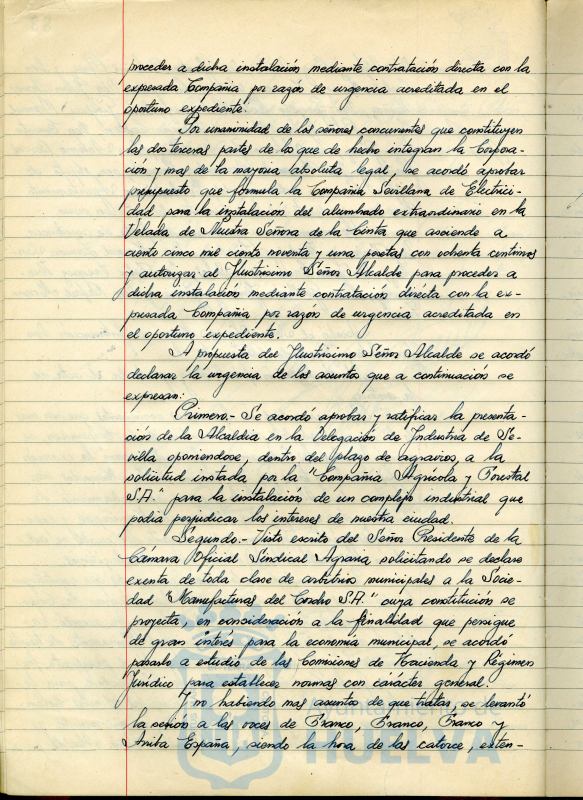 proceder a dicha instalación mediante contratación directa con la
expresada Compañia por razón de urgencia acreditada en el
oportuno expediente.
Por unanimidad de los señores concurrentes que constituyen
las dos terceras partes de lo que de hecho integran la Corpora-
ción y mas de la mayoria absoluta legal, se acordó aprobar
presupuesto que formula la Compañia Sevillana de Electrici-
dad para la instalación del alumbrado extraordinario en la
Velada de Nuestra Señora de la Cinta que asciende a
ciento cinco mil ciento noventa y una pesetas con ochenta centimos
y autorizar al Ilustrisimo Señor Alcalde para proceder a
dicha instalación mediante contratación directa con la ex-
presada Compañia por razón de urgencia acreditada en
el oportuno expediente.
A propuesta del Ilustrisimo Señor Alcalde se acordó
declarar la urgencia de los asuntos que a continuación se
expresan:
Primero.- Se acordó aprobar y ratificar la presenta-
ción de la Alcaldia en la Delegación de Industria de Se-
villa oponiendose, dentro del plazo de agravios, a la
solicitud instada por la "Compañia Agricola y Forestal
S.A." para la instalación de un complejo industrial que
podia perjudicar los intereses de nuestra ciudad.
Segundo.- Visto escrito del Señor Presidente de la
Cámara Oficial Sindical Agraria solicitando se declare
exenta de toda clase de arbitrios municipales a la Socie-
dad "Manufacturas del Corcho S.A." cuya constitución se
proyecta, en consideración a la finalidad que persigue
de gran interés para la economia municipal, se acordó
pasarlo a estudio de las Comisiones de Hacienda y Régimen
Juridico para establecer normas con carácter general.
Y no habiendo mas asuntos de que tratar, se levantó
la sesión a las voces de Franco, Franco, Franco y
Arriba España, siendo la hora de las catorce, exten-
HUELVA